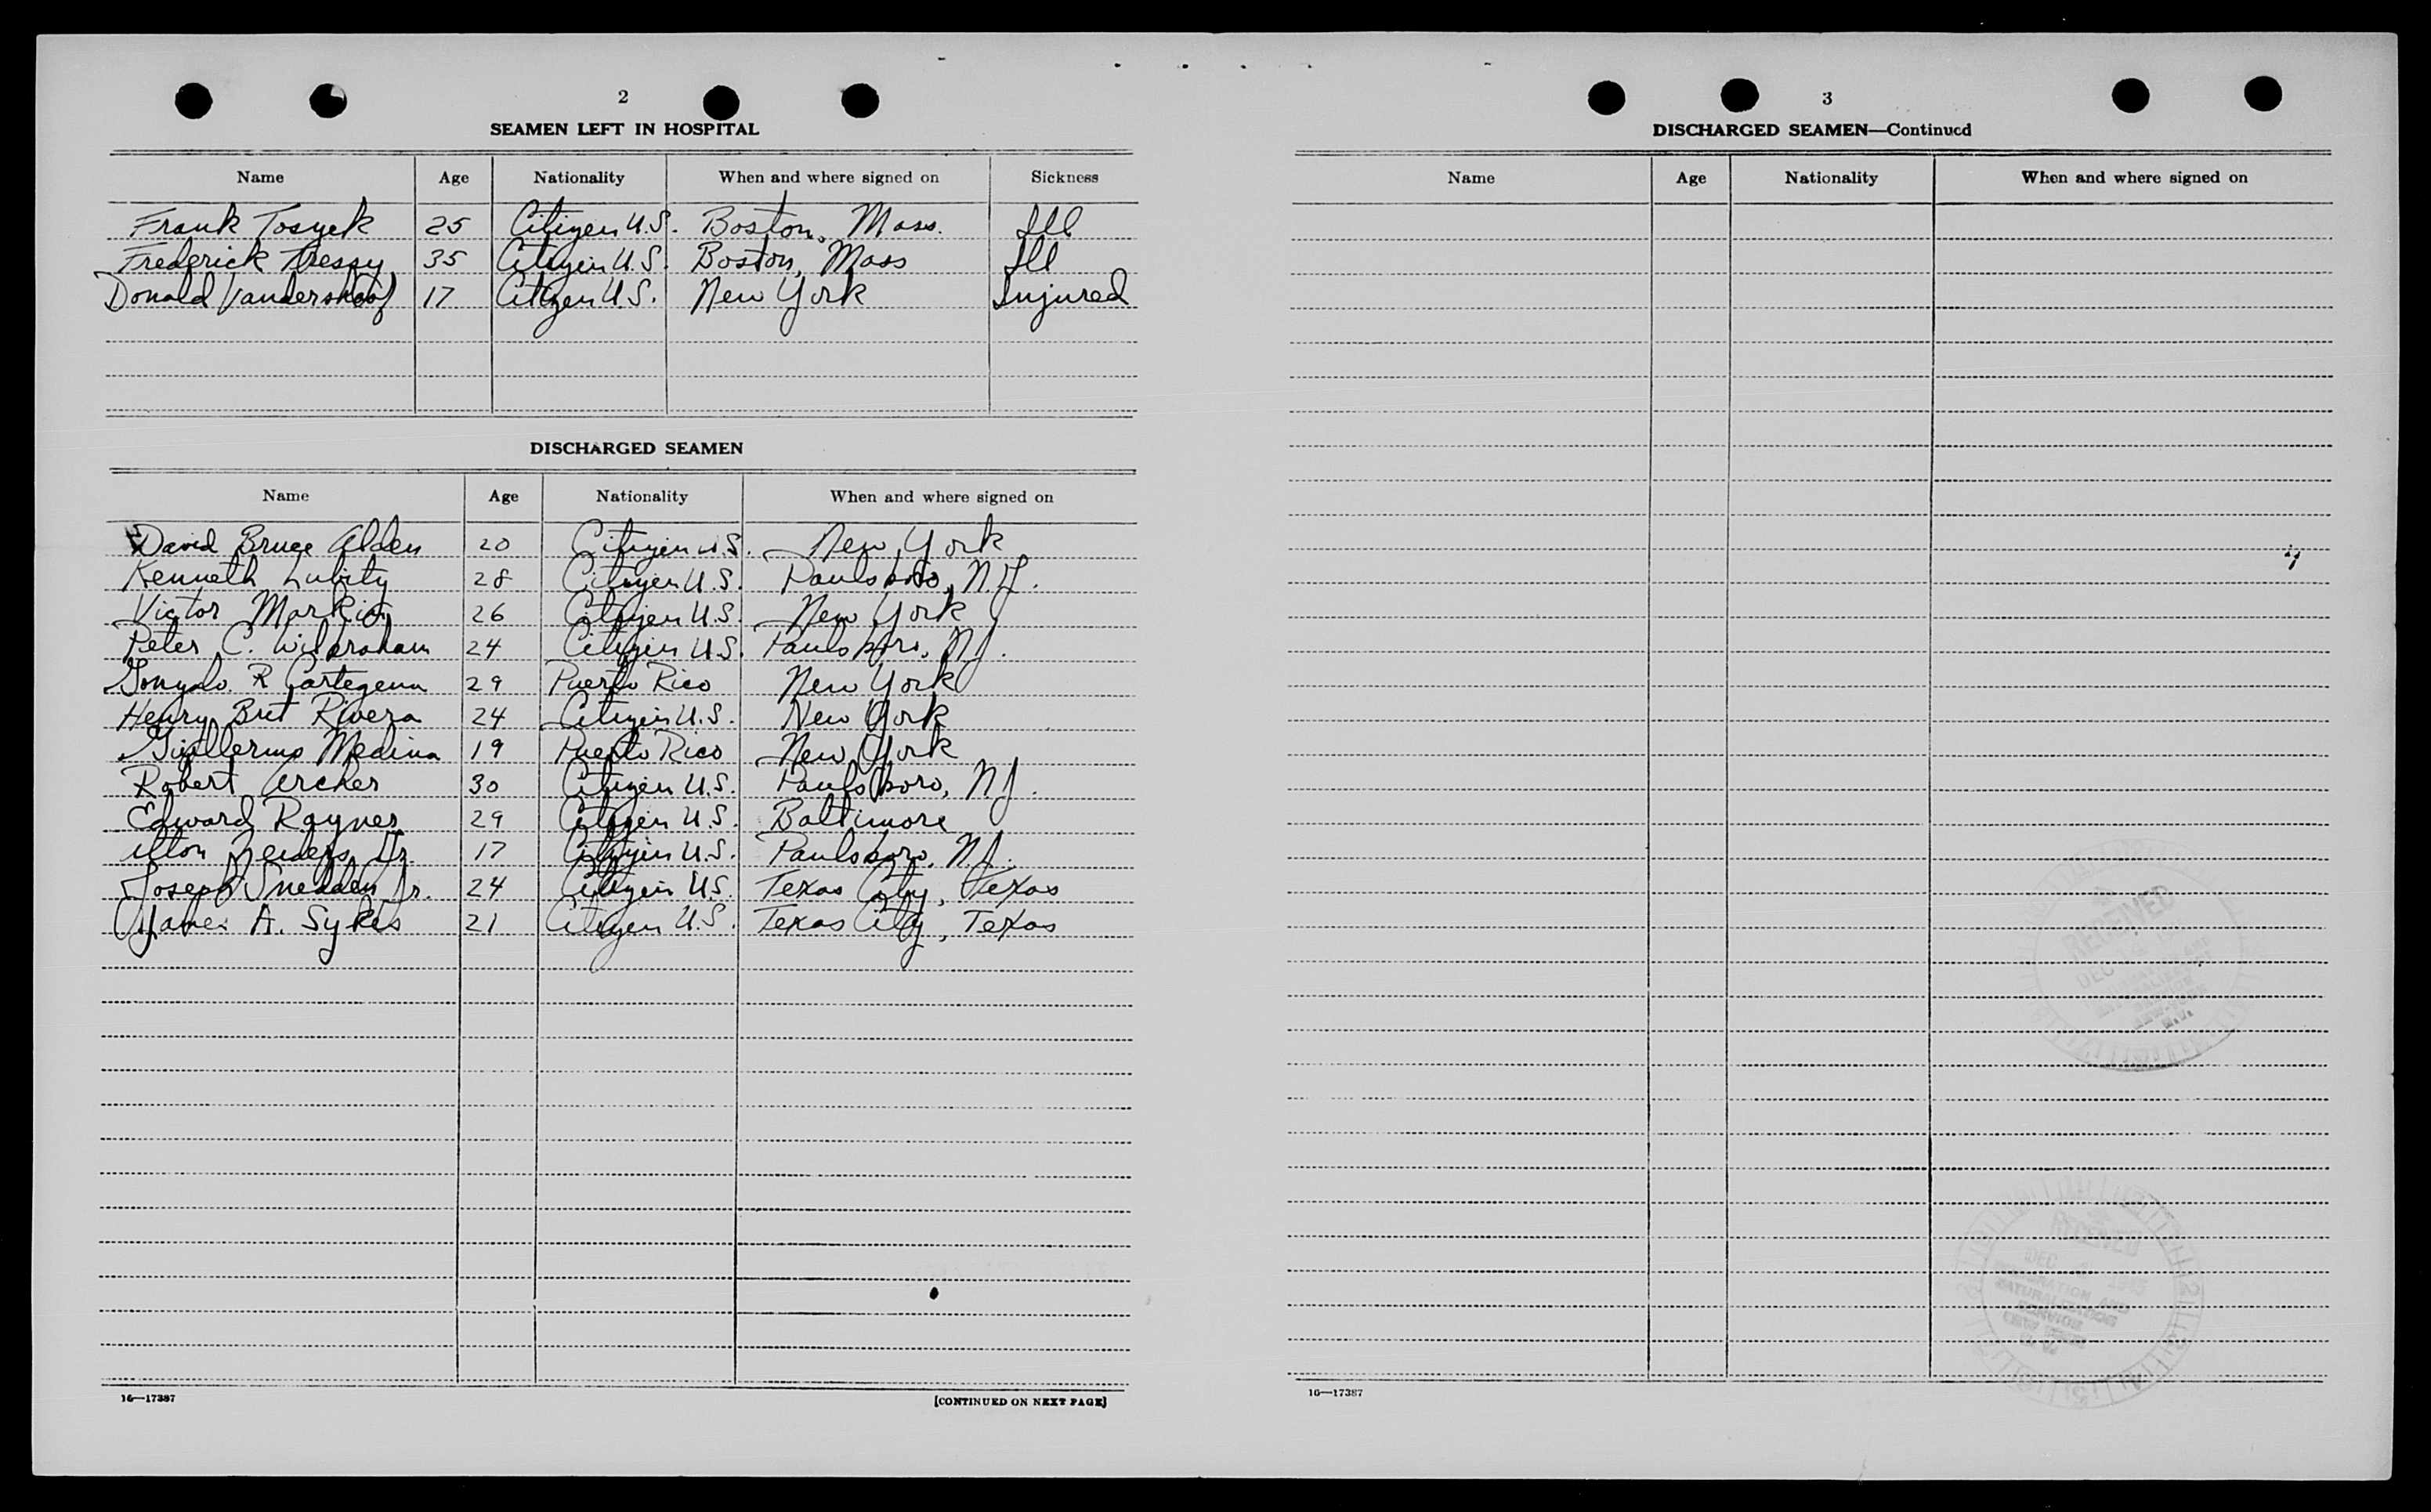 2
SEAMEN LEFT IN HOSPITAL
Name Age Nationality When and where signed on Sickness
Frank Tosyek 25 Citizen U.S. Boston, Mass. Ill
Frederick 35 Citizen U.S. Boston, Mass Ill
Donald Vandershoof 17 Citizen U.S. New York Injured
DISCHARGED SEAMEN
Name Age Nationality When and where signed on
David Bruce Alden 20 Citizen U.S. New York
Kenneth Lubity 28 Citizen U.S. Paulsboro, N.J.
Victor 26 Citizen U.S. New York
Peter C. Wilbraham 24 Citizen U.S. Paulsboro, N.J.
Gonzalo R Cartegena 29 Puerto Rico New York
Henry Bret Rivera 24 Citizen U.S. New York
Guillermo Medina 19 Puerto Rico New York
Robert Archer 30 Citizen U.S. Paulsboro, N.J.
Edward Rayner 29 Citizen U.S. Baltimore
Jr. 17 Citizen U.S. Paulsboro, N.J.
Joseph Snedden Jr. 24 Citizen U.S. Texas City, Texas
James A. Sykes 21 Citizen U.S. Texas City, Texas
16—17387 [CONTINUED ON NEXT PAGE]
3
DISCHARGED SEAMEN—Continued
Name Age Nationality When and where signed on
RECEIVED
DEC
N.J.
RECEIVED
DEC
IMMIGRATION AND
NATURALIZATION
SERVICE
16—17387